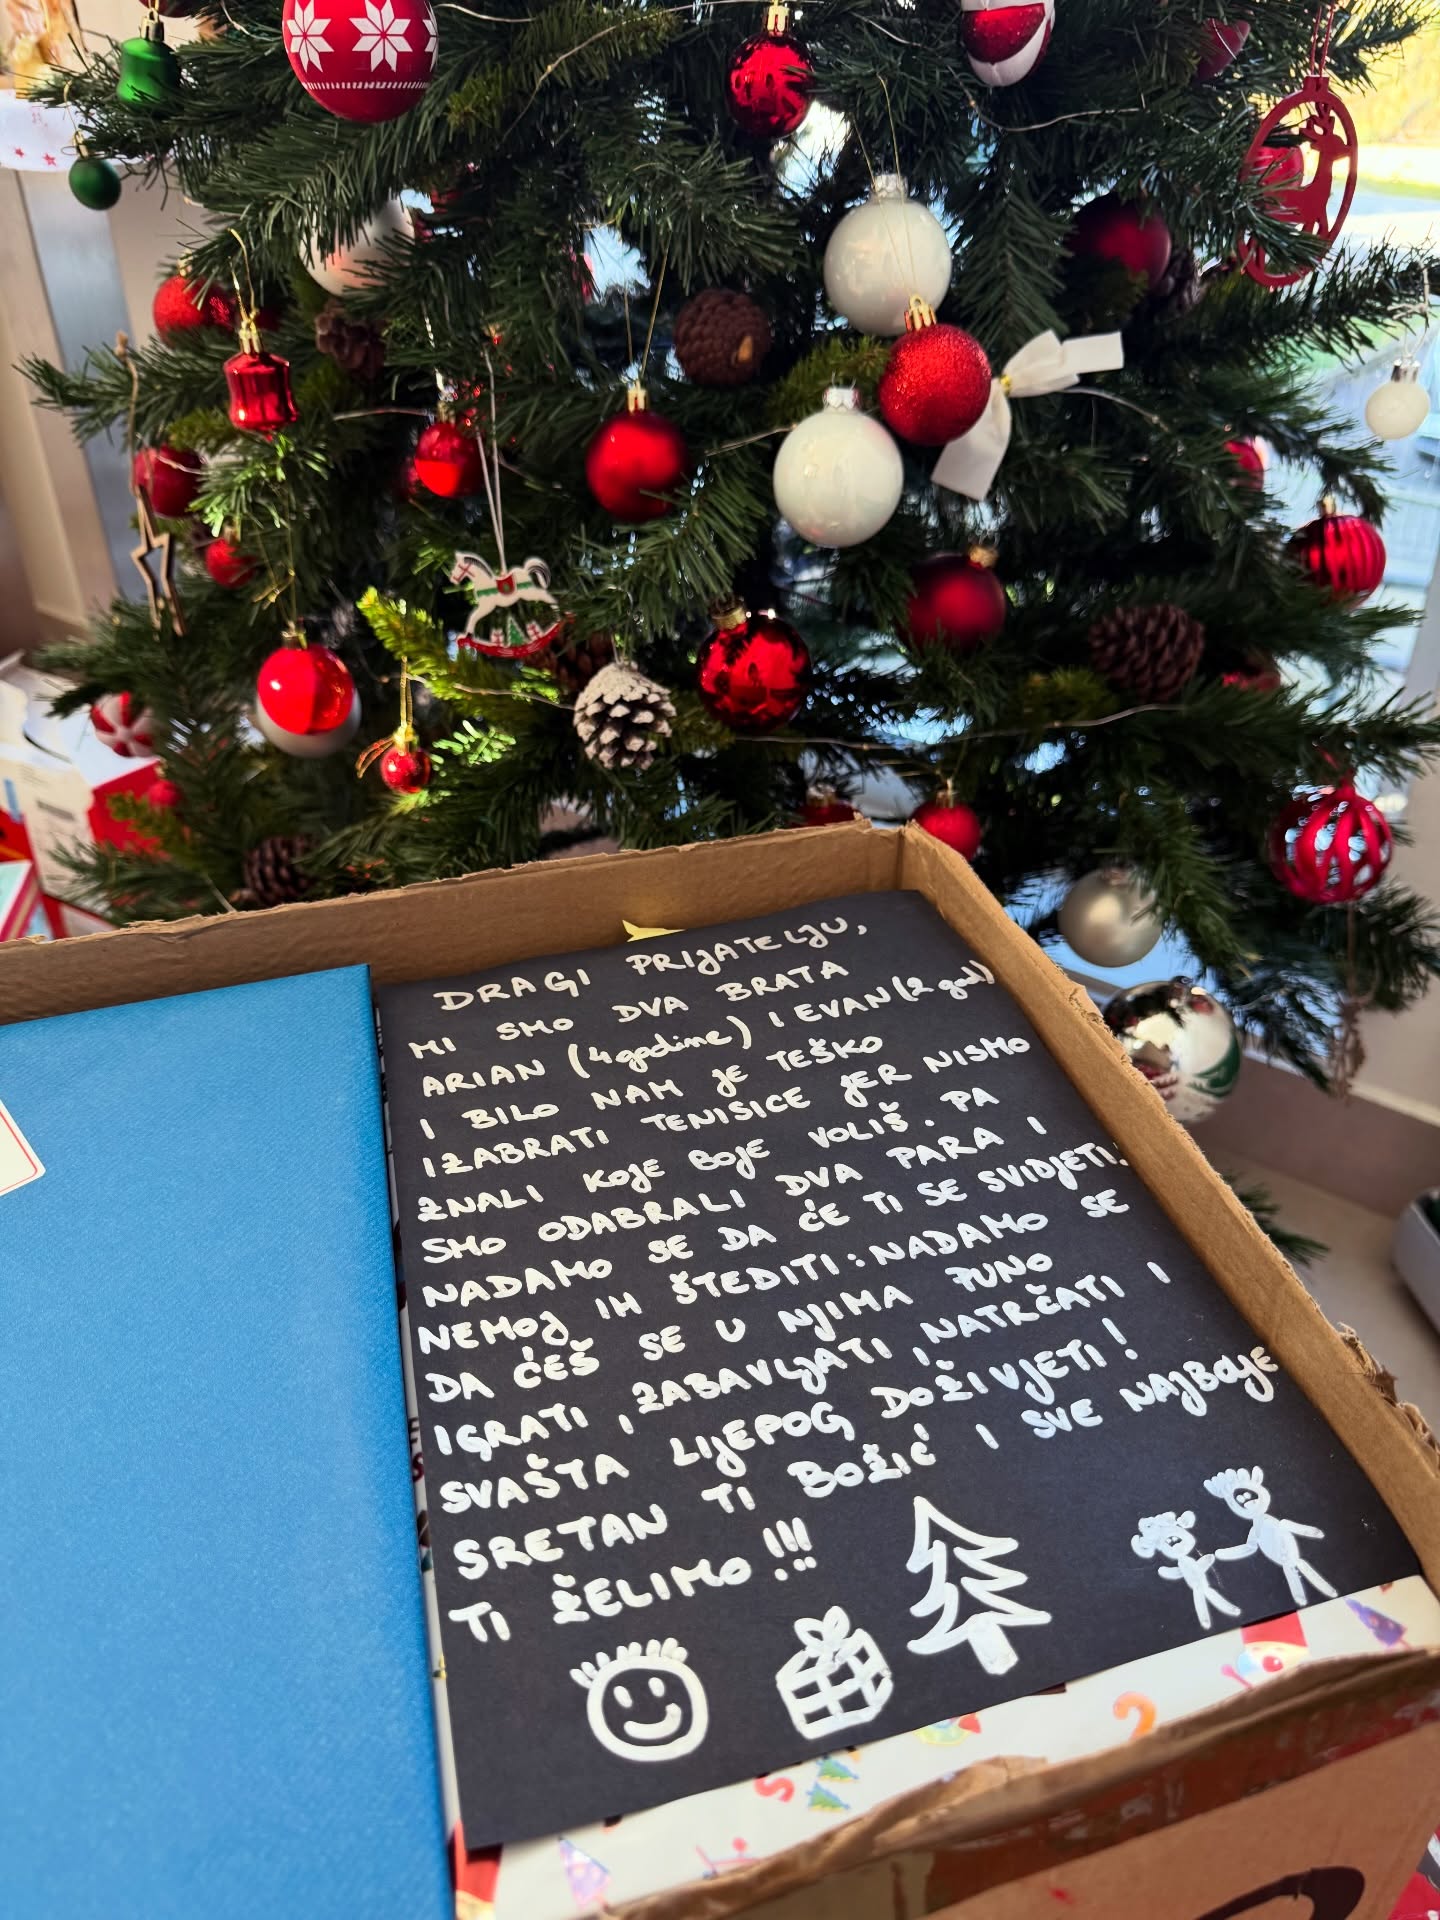 DRAGI PRIJATELJU,
MI SMO DVA BRATA
ARIAN (4 godine) I EVAN (2 god)
I BILO NAM JE TEŠKO
IZABRATI TENISICE JER NISMO
ZNALI KOJE BOJE VOLIŠ. PA
SMO ODABRALI DVA PARA I
NADAMO SE DA ĆE TI SE SVIDJETI.
NEMOJ IH ŠTEDITI: NADAMO SE
DA ĆEŠ SE U NJIMA PUNO
IGRATI, ZABAVLJATI, NATRČATI I
SVAŠTA LIJEPOG DOŽIVJETI!
SRETAN TI BOŽIĆ I SVE NAJBOLJE
TI ŽELIMO!!!